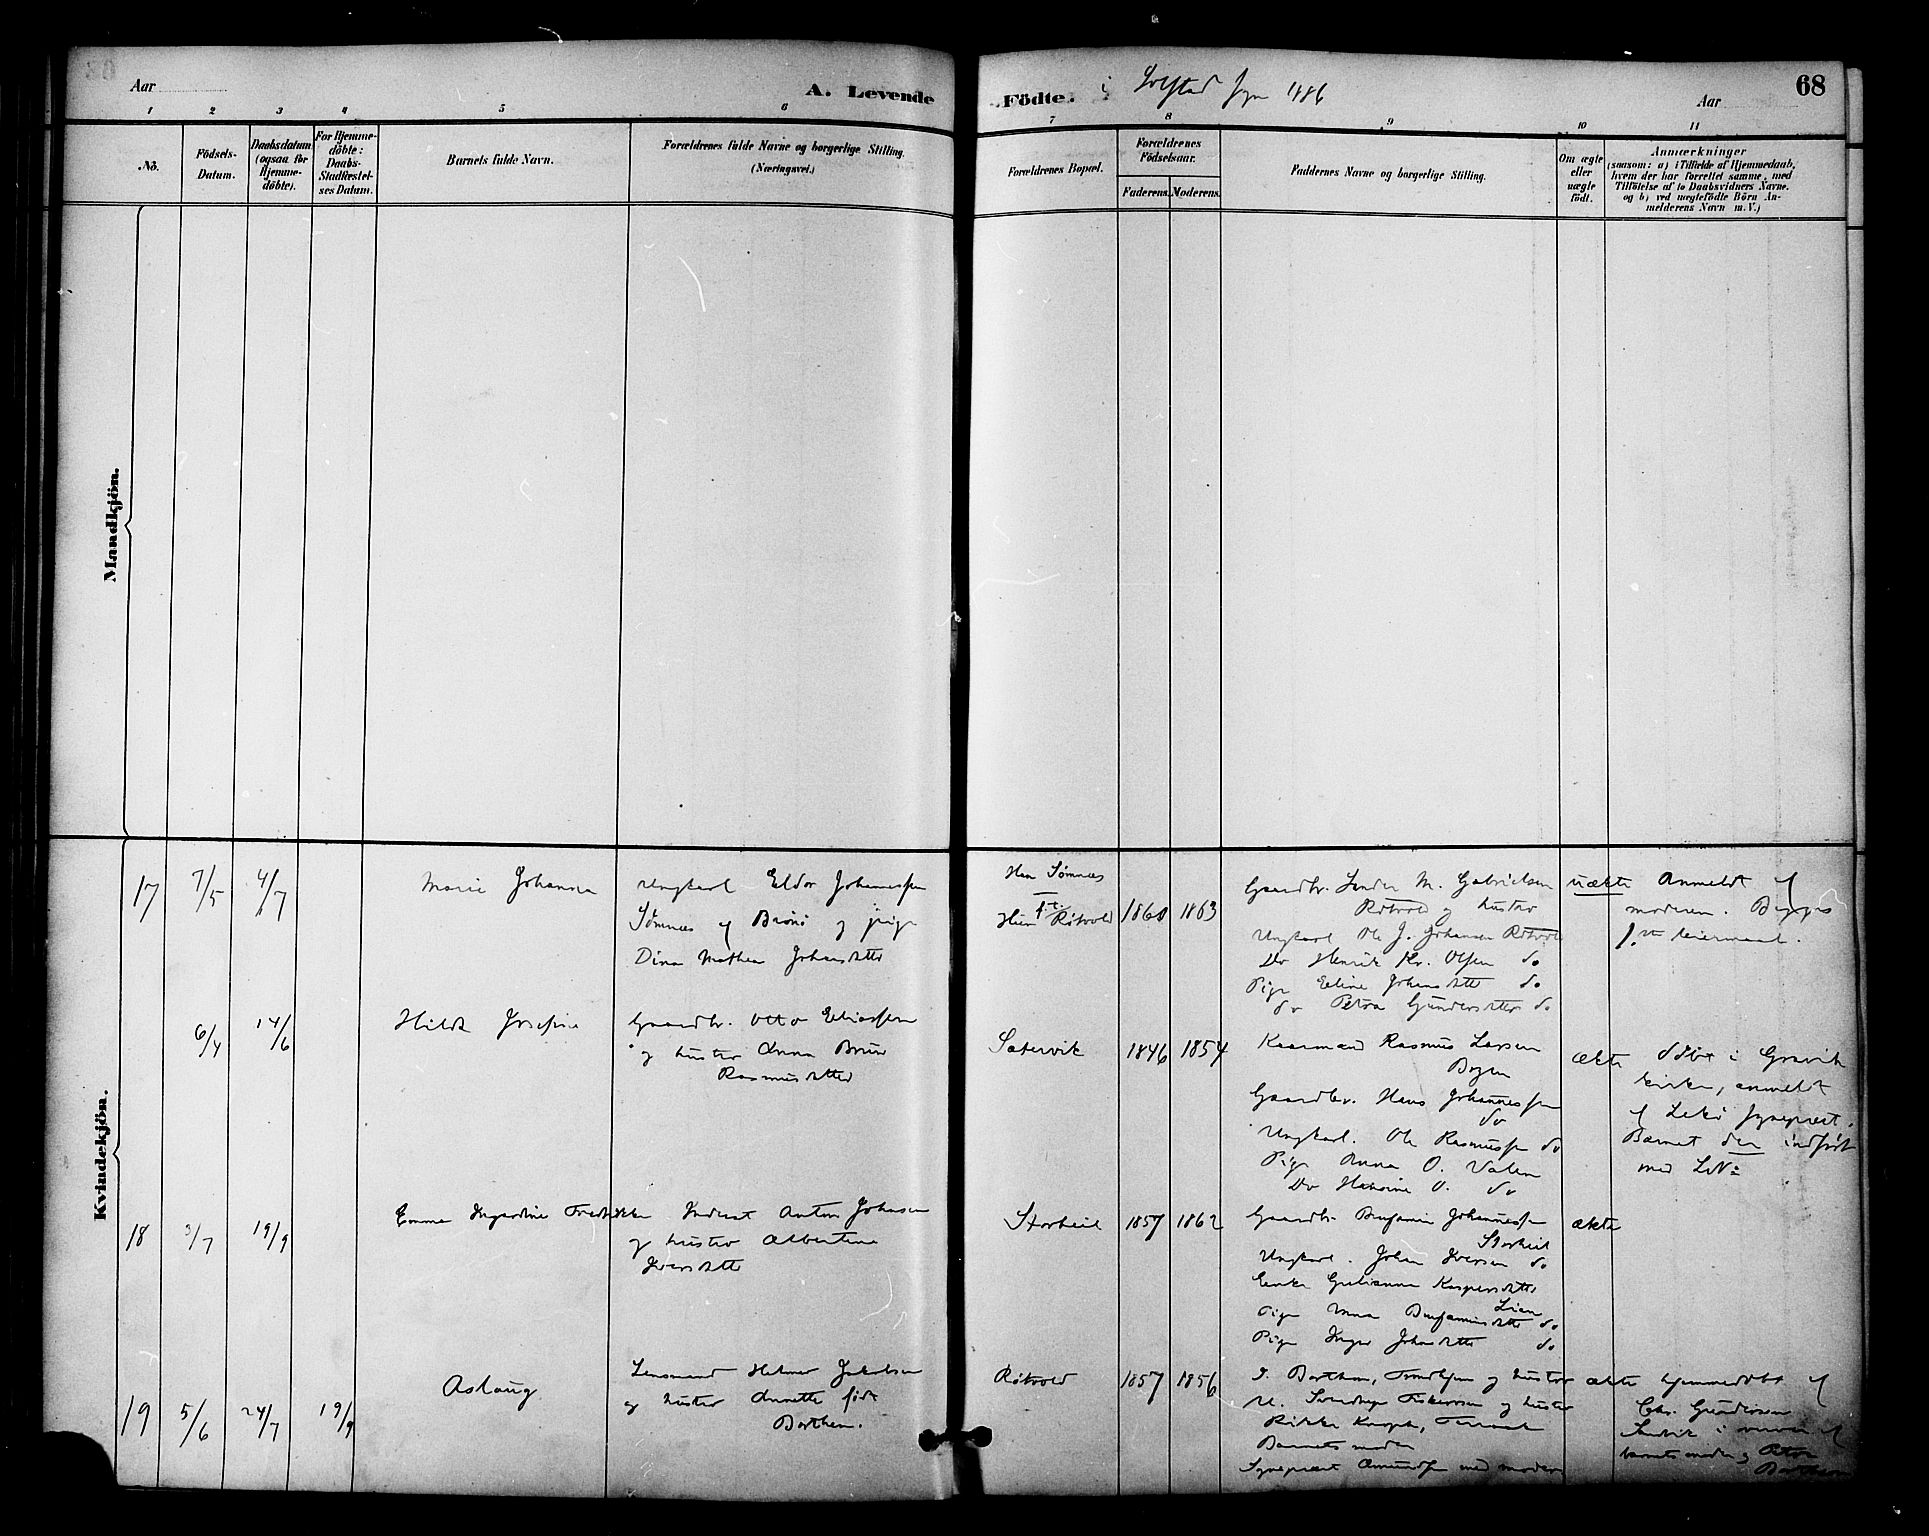 Aar
A. Levende
Födte. i Solstad sogn 1886
Aar
68
1 2 3 4 5 6 7 8 9 10 11
No.
Födsels-
Datum.
Daabsdatum
(ogsaa for
Hjemme-
döbte).
For Hjemme-
döbte:
Daabs-
Stadfæstel-
ses Datum.
Barnets fulde Navn.
Forældrenes fulde Navne og borgerlige Stilling.
(Næringsvei.)
Forældrenes Bopæl.
Forældrenes
Födselsaar.
Faderens. Moderens.
Faddernes Navne og borgerlige Stilling.
Om ægte
eller
uægte
födt.
Anmærkninger
(saasom: a) i Tilfælde af Hjemmedaab,
hvem der har forrettet samme, med
Tilföielse af to Daabsvidners Navne.
og b) ved uægtefödte Börn An-
melderens Navn m.V.)
Mandkjön.
Kvindekjön.
17
7/5
4/7
Marie Johanna
Ungkarl Eldor Johannessen
Sömnes af Brönö og pige
Dina Mathea Johansdatter
Han Sömnes
Hun Rötvold
1860
1863
Gaardbr. Sander M. Gabrielsen
Rötvold og hustro
Ungkarl Ole J. Johansen Rötvold
Do Henrik Kr. Olsen do
Pige Eline Johansdtt do
do Petra Gundersdtter do
uækte
Anmeldt af
moderen. Begges
1ste leiermaal.
6/4
14/6
Hilda Josefine
Gaardbr. Otto Eliassen
og hustro Anna Brun
Rasmusdatter
Satervik
1846
1854
Kaarmand Rasmus Larsen
Bogen
Gaardbr. Hans Johannessen
do
Ungkarl. Ole Rasmussen do
Pige Anna O. Valen
Do O. do
ækte
döbt i Gravik
kirke, anmeldt
af Lekö sogneprest.
Barnet der indfört
med No
18
3/7
19/9
Emma Ingardine Fredrikke
Inderst Anton Johnsen
og hustro Albertine
Iversdatter
Storheil
1857
1862
Gaardbr. Benjamin Johannessen
Storheil
Ungkarl. Johan Iversen do
Enke Gulianna Kaspersdatter
Lian
Pige Anna Benjaminsdatter do
Pige Inger Johansdatter do
ækte
19
5/6
24/7
19/9
Aslaug
Lensmand Helmer Jakobsen
og hustro Annette födt
Barthen.
Rötvold
1857
1856
J. Barthen, Trondhjem og hustro
og hustro
Rikke
Barnets moder
Sogneprest Amundsen med moder
ækte
hjemmedöbt af
Chr. Gundersen
i nærvær af
barnets moder og Petra
Barthen